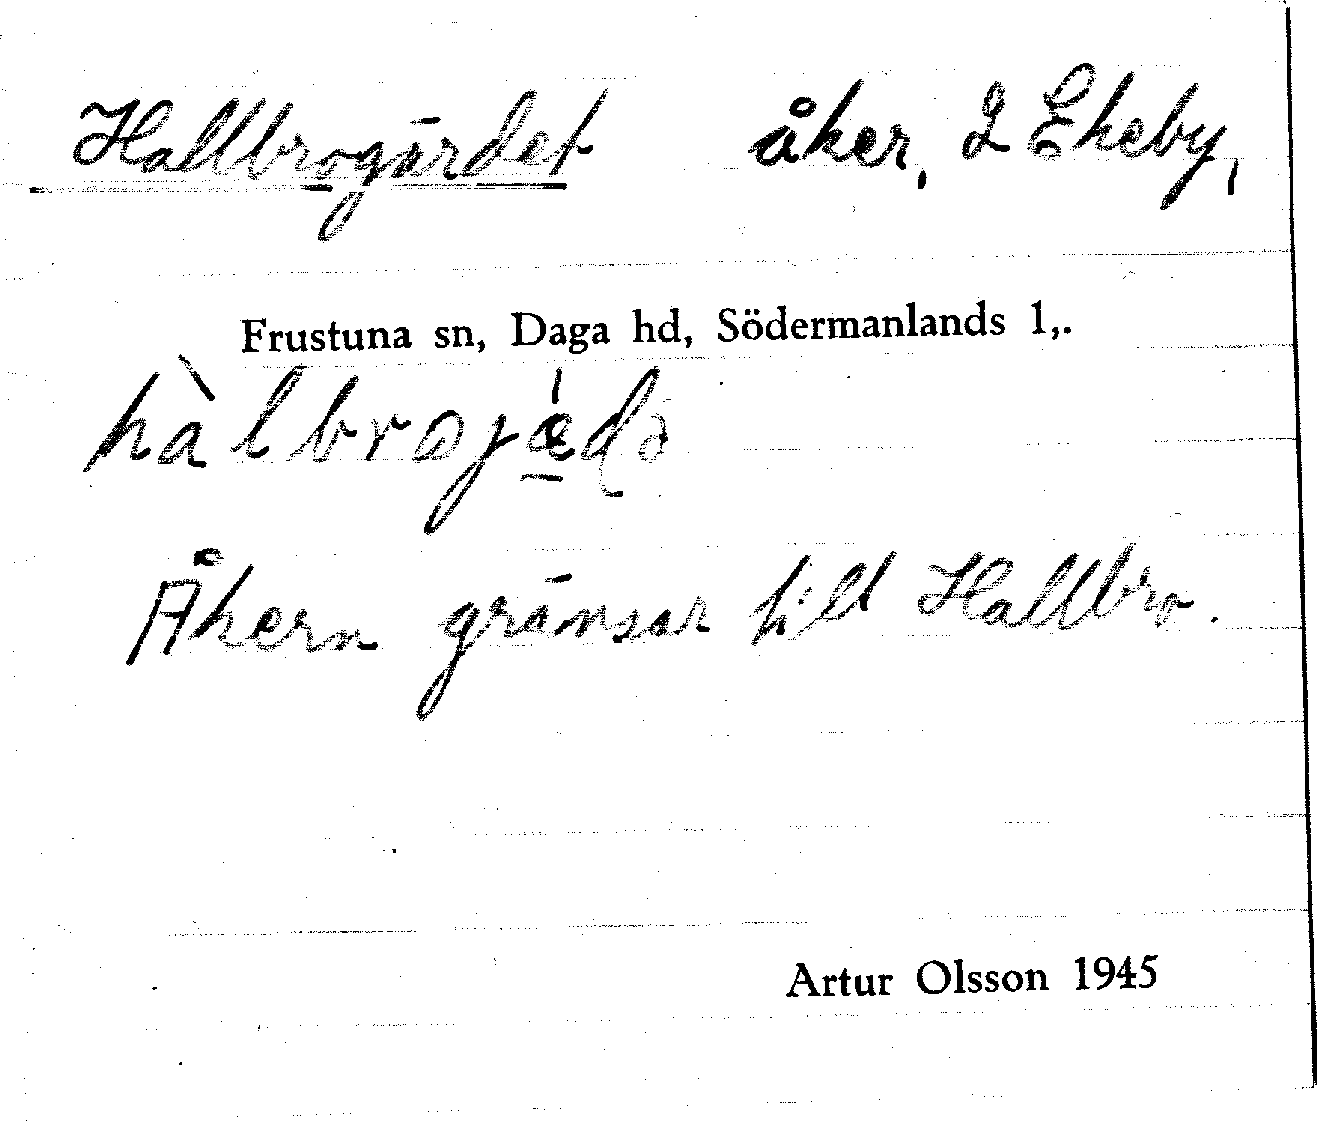 Hallbrogärdet åker, 2 Ekeby,
Frustuna sn, Daga hd, Södermanlands l,.
hàlbrojǽ̠ḍə
Åkern gränsar till Hallbro.
Artur Olsson 1945